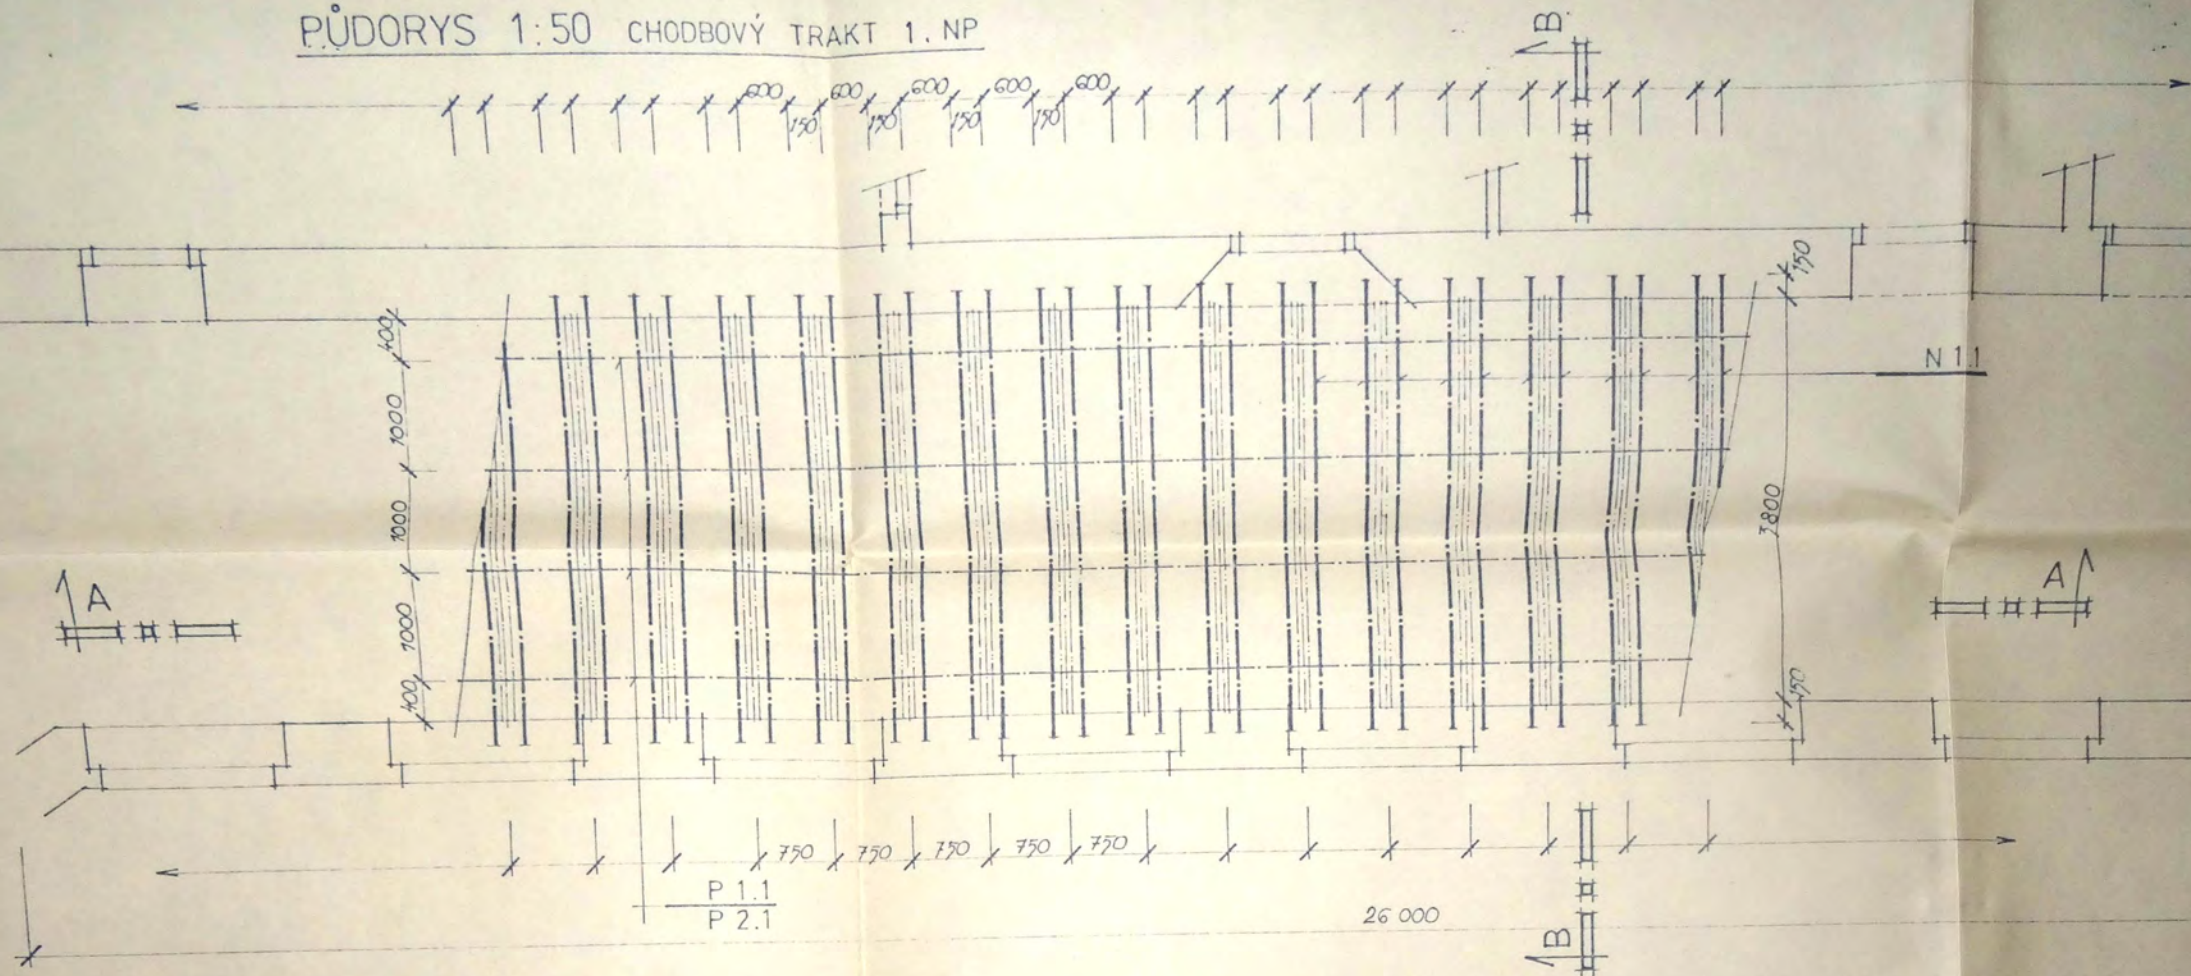 PŮDORYS 1:50 CHODBOVÝ TRAKT 1. NP
B
600 600 600 600 600
150 150 150 150
150
400
N 1.1
1000
1000
3800
A
A
1000
400
150
750 750 750 750 750
P 1.1
P 2.1
26 000
B